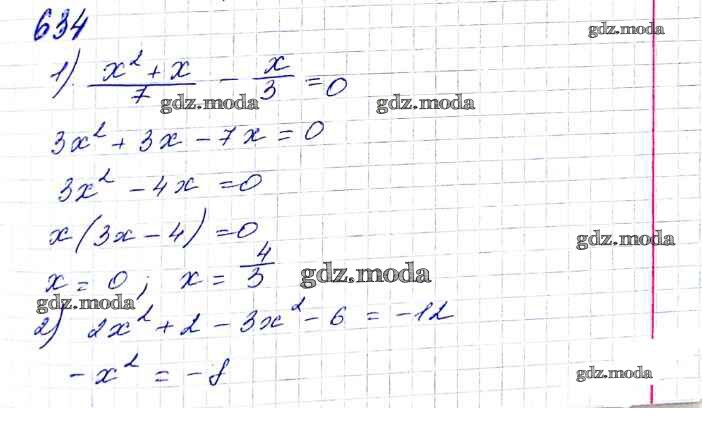 634
gdz.moda
1). (x² + x)/7 - x/3 = 0
gdz.moda gdz.moda
3x² + 3x - 7x = 0
3x² - 4x = 0
x(3x - 4) = 0
gdz.moda
x = 0; x = 4/3
gdz.moda
gdz.moda
2) 2x² + 2 - 3x² - 6 = -12
-x² = -8
gdz.moda